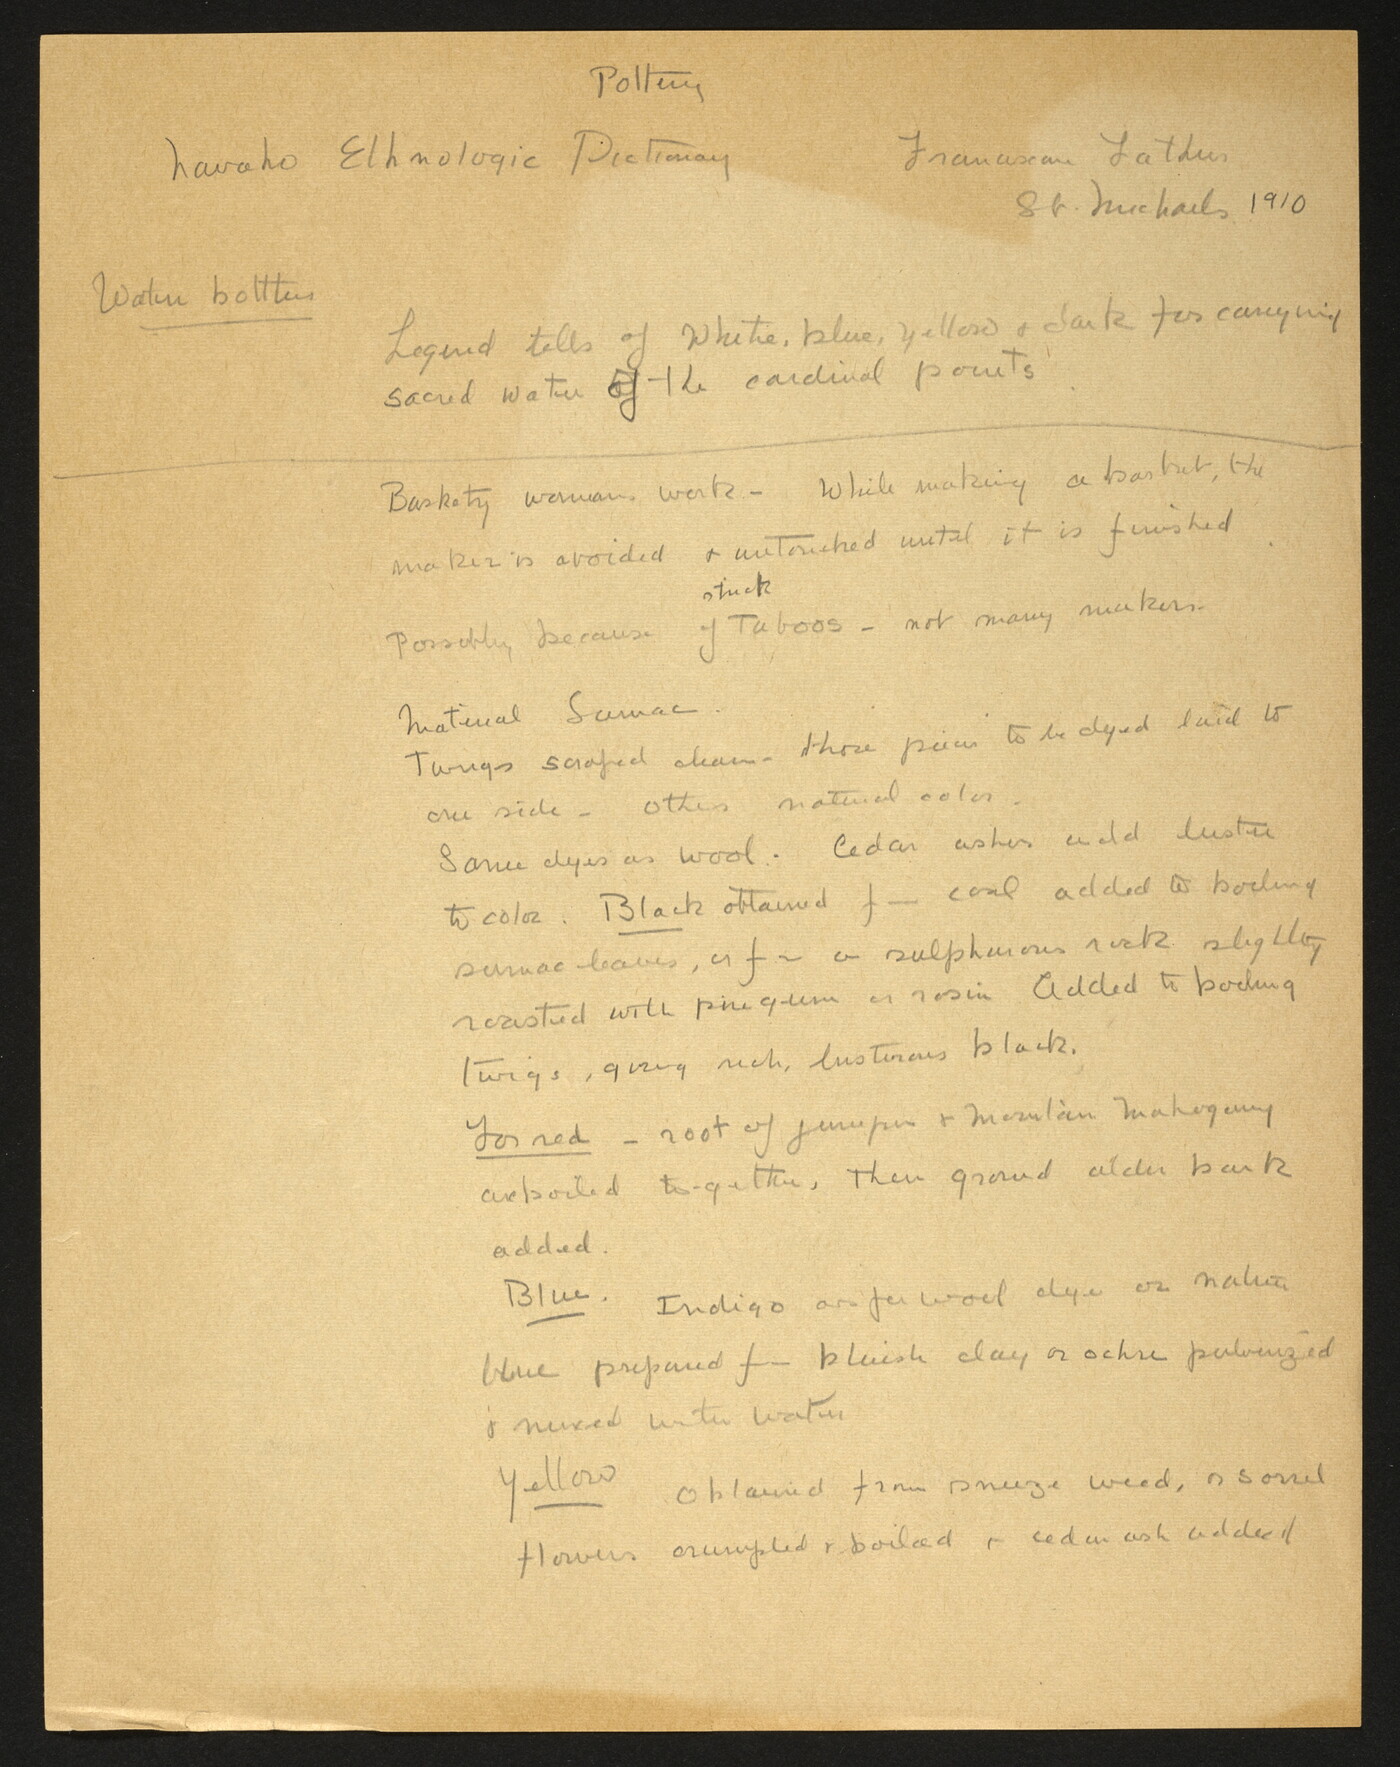 Pottery
Navaho Ethnologic Dictionary Franciscan Fathers
St. Michaels 1910
Water bottles
Legend tells of White, blue, yellow & dark for carrying
sacred water of the cardinal points.
Basketry womans work - While making a basket, the
maker is avoided & untouched until it is finished.
strict
Possibly because of Taboos - not many makers.
Material Sumac.
Twigs scraped clean - those pieces to be dyed laid to
one side - others natural color.
Same dyes as wool. Cedar ashes add luster
to color. Black obtained f— coal added to boiling
sumac leaves, or f— a sulphurous rock slightly
roasted with pine gum or rosin Added to boiling
twigs, giving rich, lusterous black.
For red - root of juniper & Mountain Mahogany
are boiled to-gether, then ground alder bark
added.
Blue. Indigo as for wool dye or native
blue prepared f— bluish clay or ochre pulverized
& mixed with water
Yellow obtained from sneeze weed, or sorrel
flowers crumpled & boiled & cedar ash added